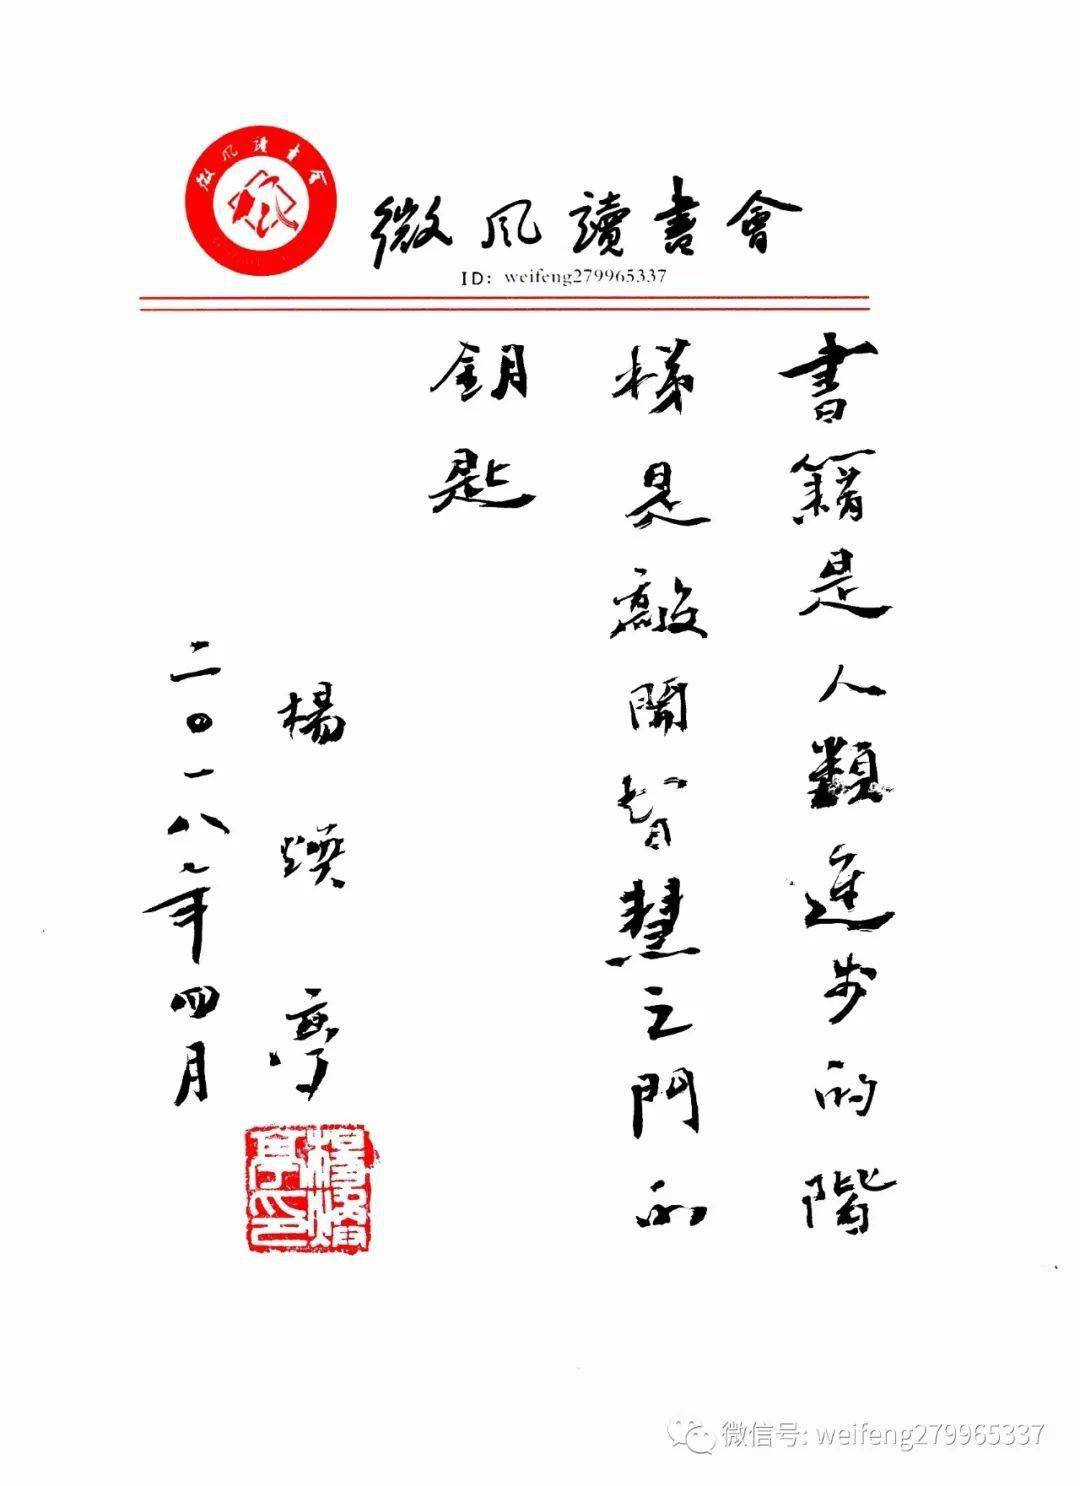 微風讀書會
微風讀書會
ID: weifeng279965337
書籍是人類進步的階
梯是敲開智慧之門的
鑰匙
楊煥亭
二〇一八年四月
楊煥亭印
微信号: weifeng279965337